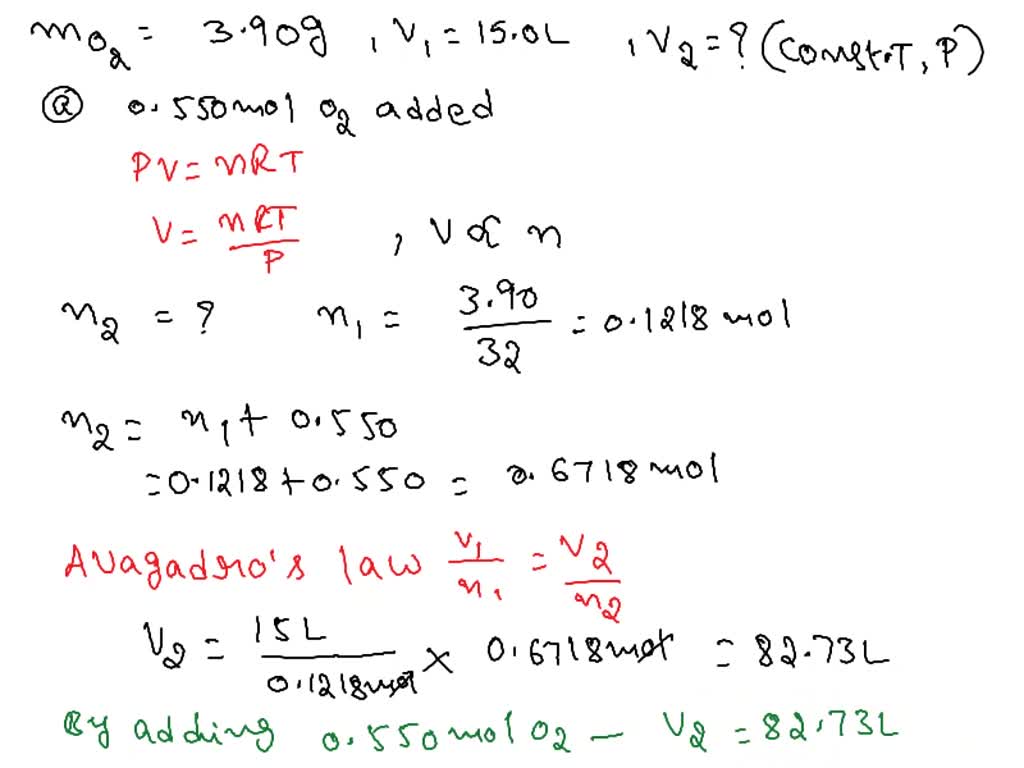 mO₂ = 3.90g , V₁ = 15.0L , V₂ = ? (Const.T, P)
ⓐ 0.550mol O₂ added
PV = nRT
V = nRT/P , V ∝ n
n₂ = ? n₁ = 3.90/32 = 0.1218 mol
n₂ = n₁ + 0.550
= 0.1218 + 0.550 = 0.6718 mol
Avagadro's law V₁/n₁ = V₂/n₂
V₂ = 15L/0.1218mol × 0.6718mol = 82.73L
By adding 0.550mol O₂ – V₂ = 82.73L